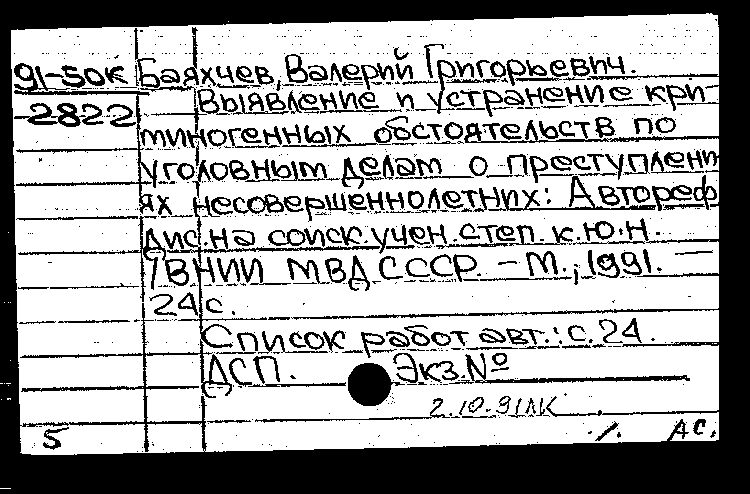 91-50к Баяхчев, Валерий Григорьевич.
2822 Выявление и устранение кри-
миногенных обстоятельств по
уголовным делам о преступлени
ях несовершеннолетних: Автореф
дис. на соиск. учен. степ. к.ю.н.
/ВНИИ МВД СССР. – М., 1991. –
24 с.
Список работ авт.: с. 24.
ДСП. Экз. №
2.10.91 ЛК
5 АС.